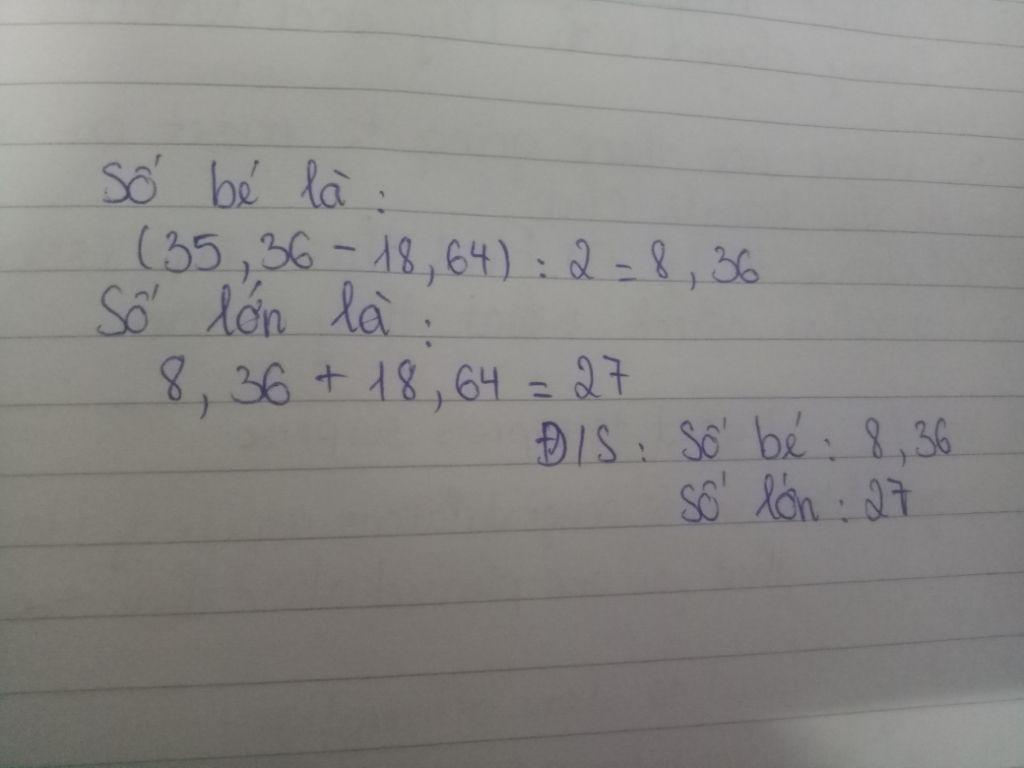 Số bé là :
(35,36 - 18,64) : 2 = 8,36
Số lớn là :
8,36 + 18,64 = 27
Đ/S : Số bé : 8,36
Số lớn : 27